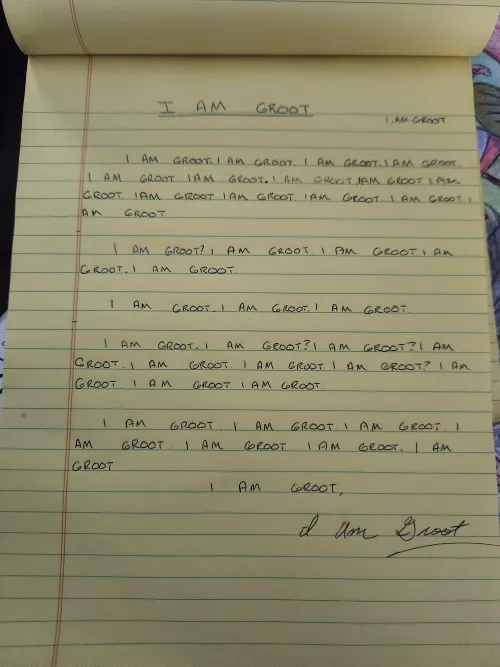 I AM GROOT
I.AM.GROOT
I AM GROOT. I AM GROOT. I AM GROOT. I AM GROOT.
I AM GROOT. I AM GROOT. I AM GROOT. IAM GROOT IAM
GROOT. IAM GROOT IAM GROOT. IAM GROOT. I AM GROOT. I
AM GROOT
I AM GROOT? I AM GROOT. I AM GROOT. I AM
GROOT. I AM GROOT.
I AM GROOT. I AM GROOT. I AM GROOT.
I AM GROOT. I AM GROOT? I AM GROOT? I AM
GROOT. I AM GROOT. I AM GROOT. I AM GROOT? I AM
GROOT. I AM GROOT I AM GROOT.
I AM GROOT. I AM GROOT. I AM GROOT. I
AM GROOT. I AM GROOT I AM GROOT. I AM
GROOT
I AM GROOT,
I am Groot